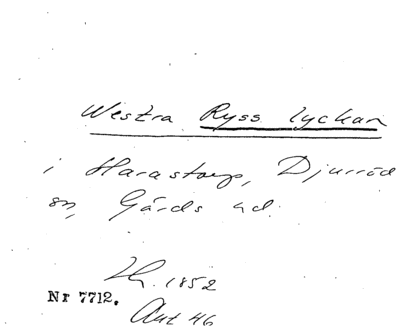 Westra Ryss lyckan
i Harastorp, Djurröd
sn, Gärds hd.
1852
Nr 7712.
Akt 46